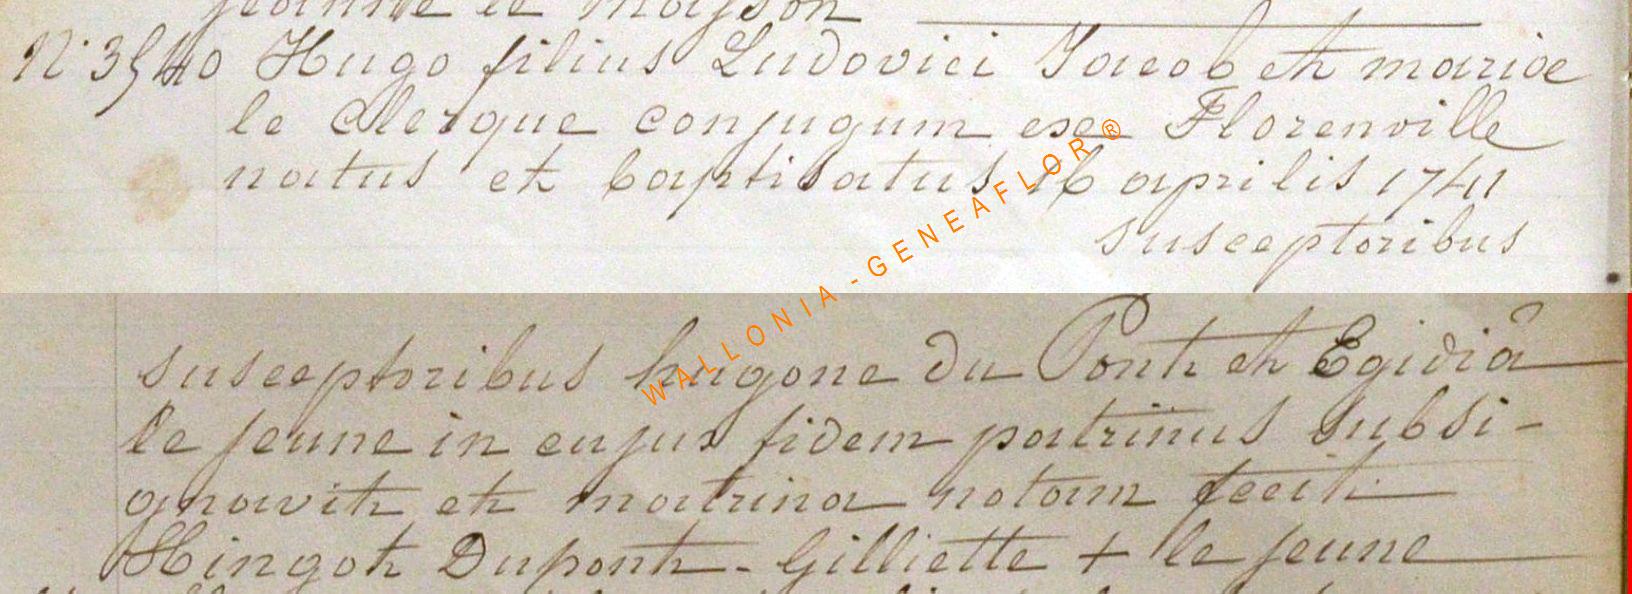 jeanne le mayson
N° 3540 Hugo filius Ludovici Jacob et mariae
le Clerque conjugum exe Florenville
natus et baptisatus 16 aprilis 1741
susceptoribus
WALLONIA - GENEAFLOR ®
susceptoribus hugone du Pont et Egidiâ
le jeune in cujus fidem patrinus subsi-
gnavit et matrina notam fecit
Hingot Dupont - Gilliette + le jeune